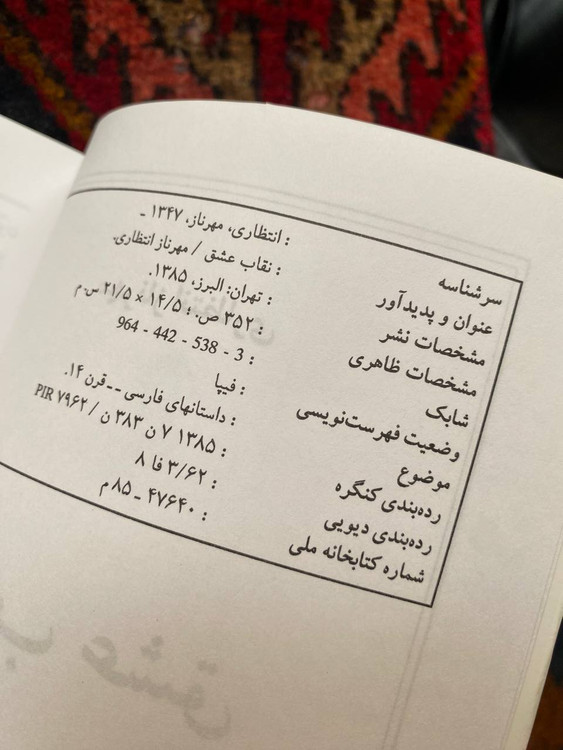 سرشناسه : انتظاری، مهرناز، ۱۳۴۷ ـ
عنوان و پدیدآور : نقاب عشق / مهرناز انتظاری.
مشخصات نشر : تهران: البرز، ۱۳۸۵.
مشخصات ظاهری : ۳۵۲ ص.؛ ۱۴/۵ × ۲۱/۵ س.م
شابک : 964 - 442 - 538 - 3
وضعیت فهرست‌نویسی : فیپا
موضوع : داستانهای فارسی ــ قرن ۱۴.
رده‌بندی کنگره : ۱۳۸۵ ۷ ن ۳۸۳ ن / PIR ۷۹۶۲
رده‌بندی دیویی : ۳/۶۲ فا ۸
شماره کتابخانه ملی : ۴۷۶۴۰ ـ ۸۵ م